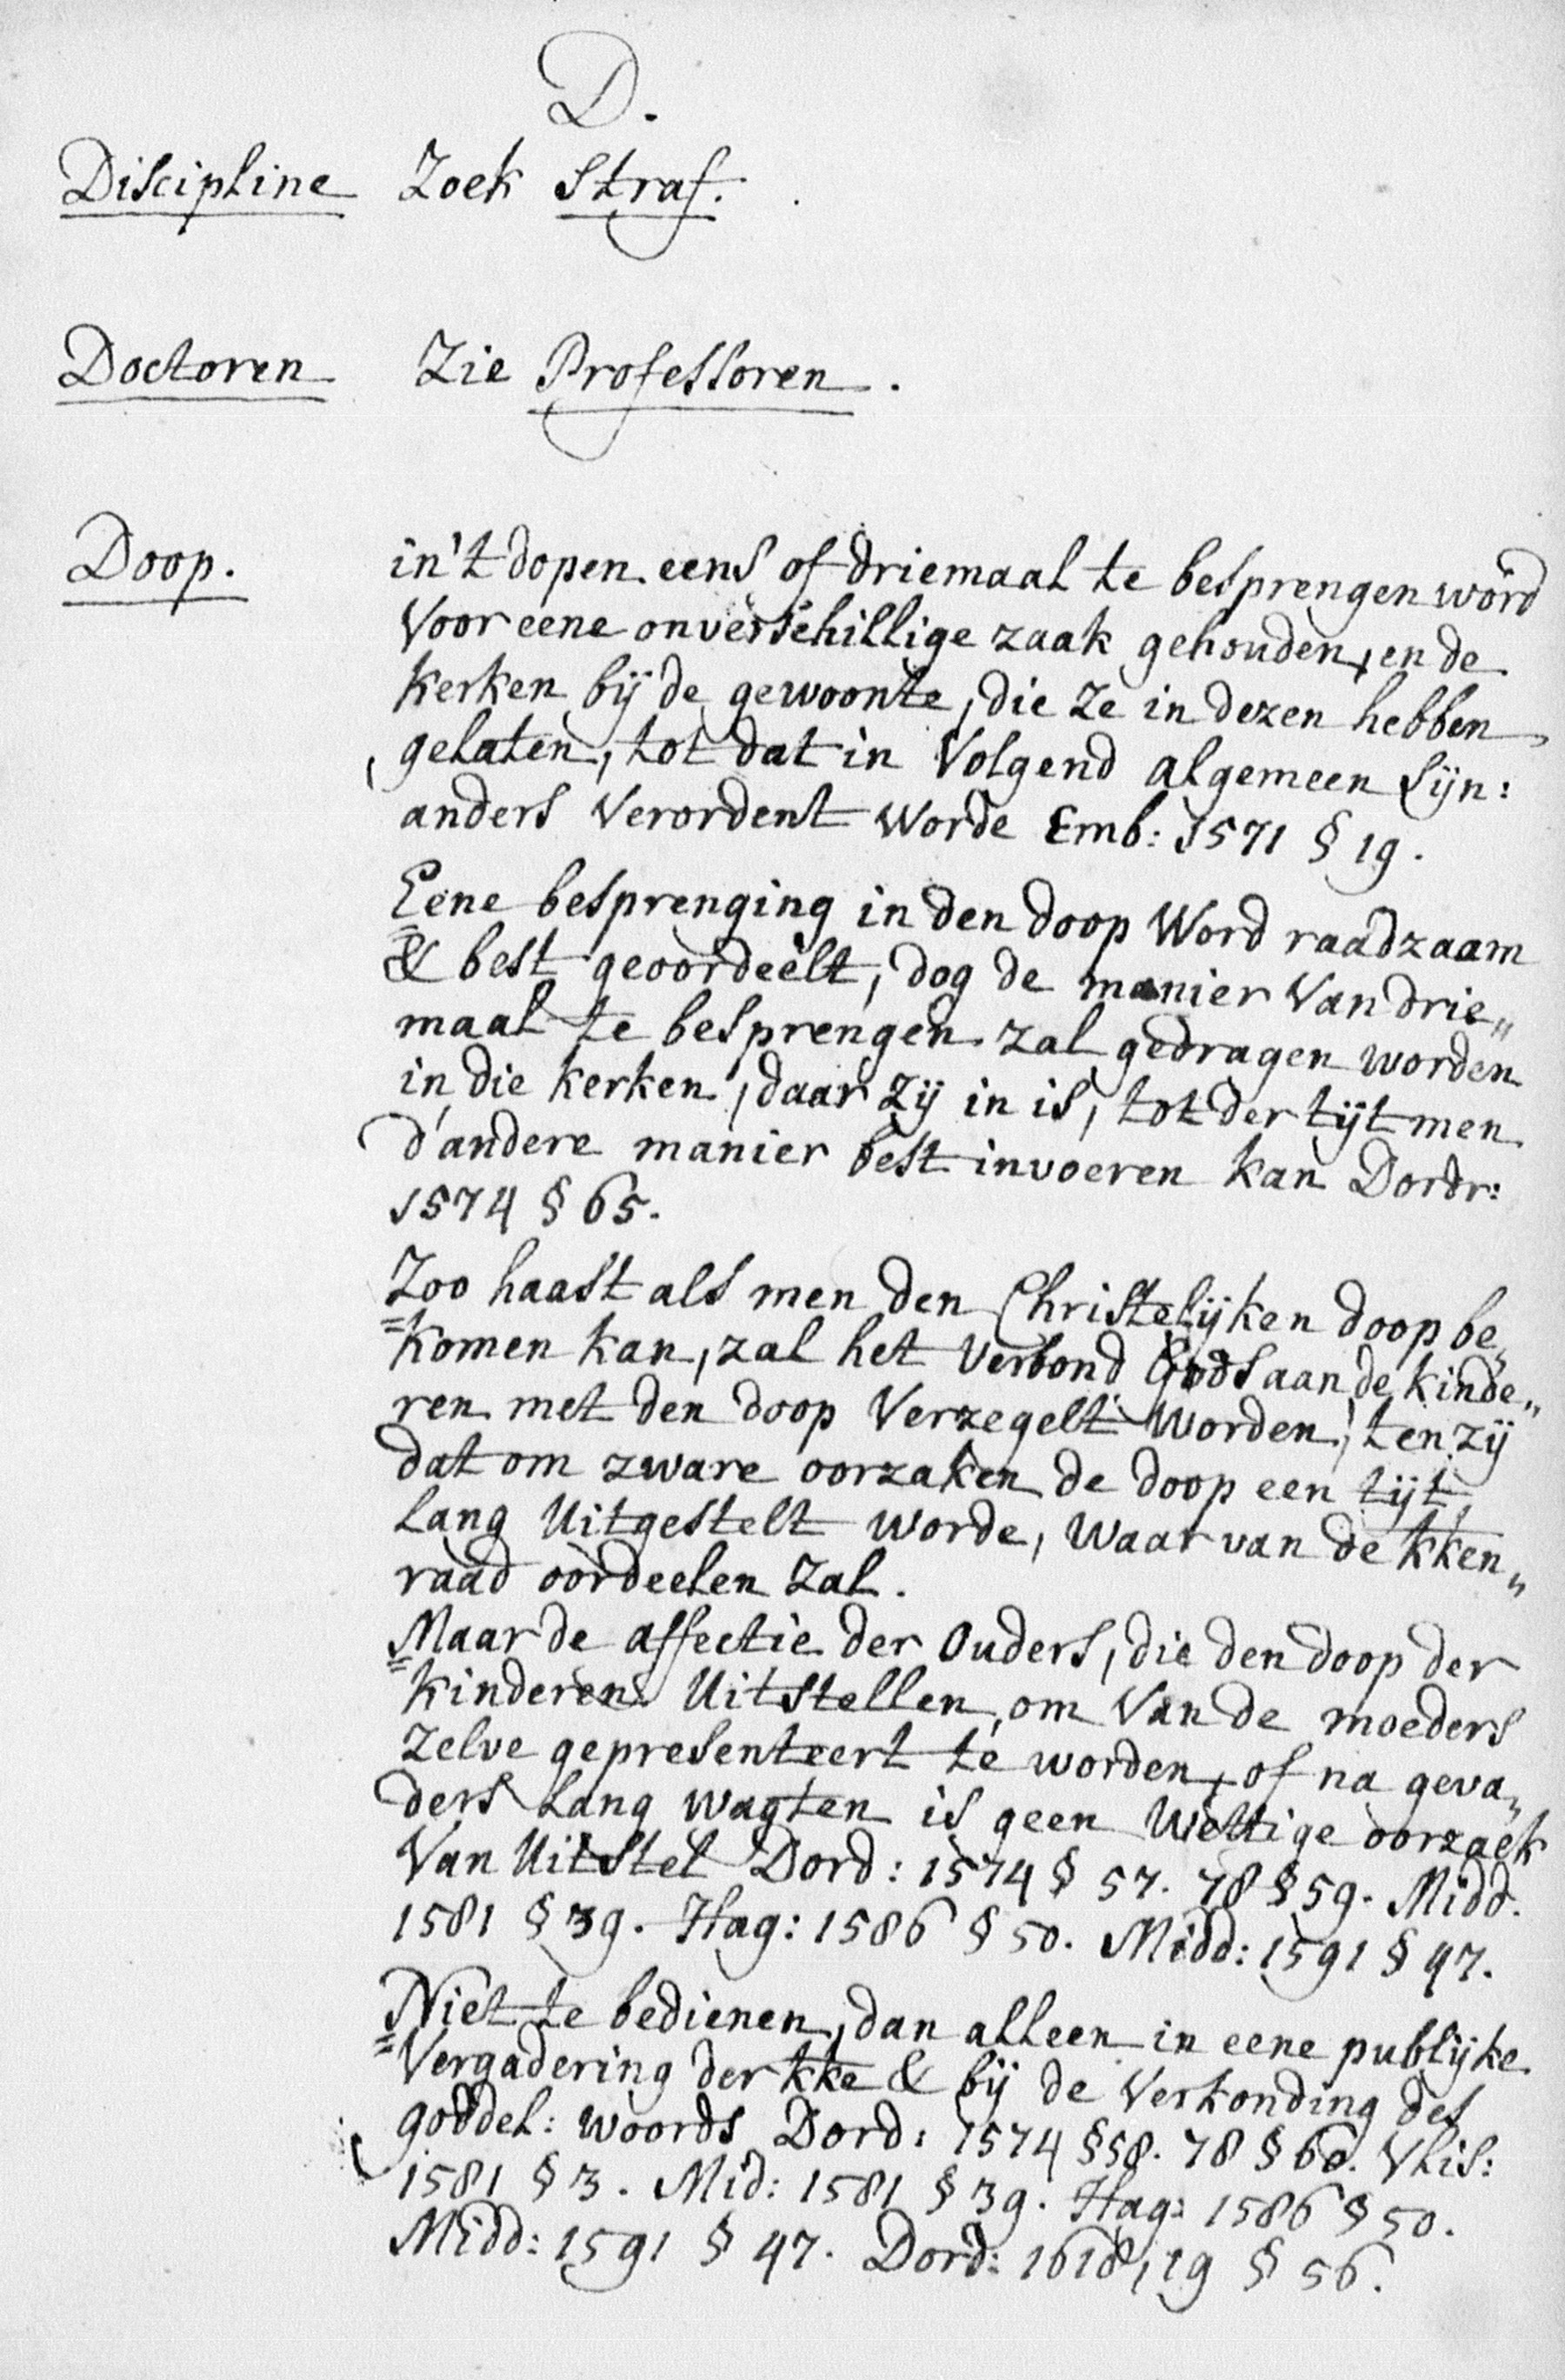 D.
Discipline Zoek Straf.
Doctoren Zie Professoren.
Doop. in't dopen eens of driemaal te besprengen word
Voor eene onverschillige zaak gehouden, en de
Kerken bij de gewoonte, die ze in dezen hebben
gelaten, tot dat in Volgend algemeen Sijn:
anders Verordent Worde Emb: 1571 § 19.
Eene besprenging in den doop Word raadzaam
& best geoordeelt, dog de manier Van drie„
maal te besprengen zal gedragen worden
in die kerken, daar zij in is, tot der tijt men
d'andere manier best invoeren kan Dordr:
1574 § 65.
Zoo haast als men den Christelijken doop be„
komen kan, zal het Verbond Gods aan de kinde„
ren met den doop Verzegelt Worden, ten zij
dat om zware oorzaken de doop een tijt
lang Uitgestelt worde, Waar van de kken„
raad oordeelen zal.
Maar de affectie der Ouders, die den doop der
kinderen Uitstellen, om Van de moeders
Zelve gepresenteert te worden, of na geva„
ders lang wagten is geen Wettige oorzaek
Van Uitstel Dord: 1574 § 57. 78 § 59. Midd.
1581 § 39. Hag: 1586 § 50. Midd: 1591 § 47.
Niet te bedienen, dan alleen in eene publijke
Vergadering der kke & bij de Verkonding des
goddel: woords Dord: 1574 § 58. 78 § 60. Vlis:
1581 § 3. Mid: 1581 § 39. Hag: 1586 § 50.
Midd: 1591 § 47. Dord: 1618, 19 § 56.